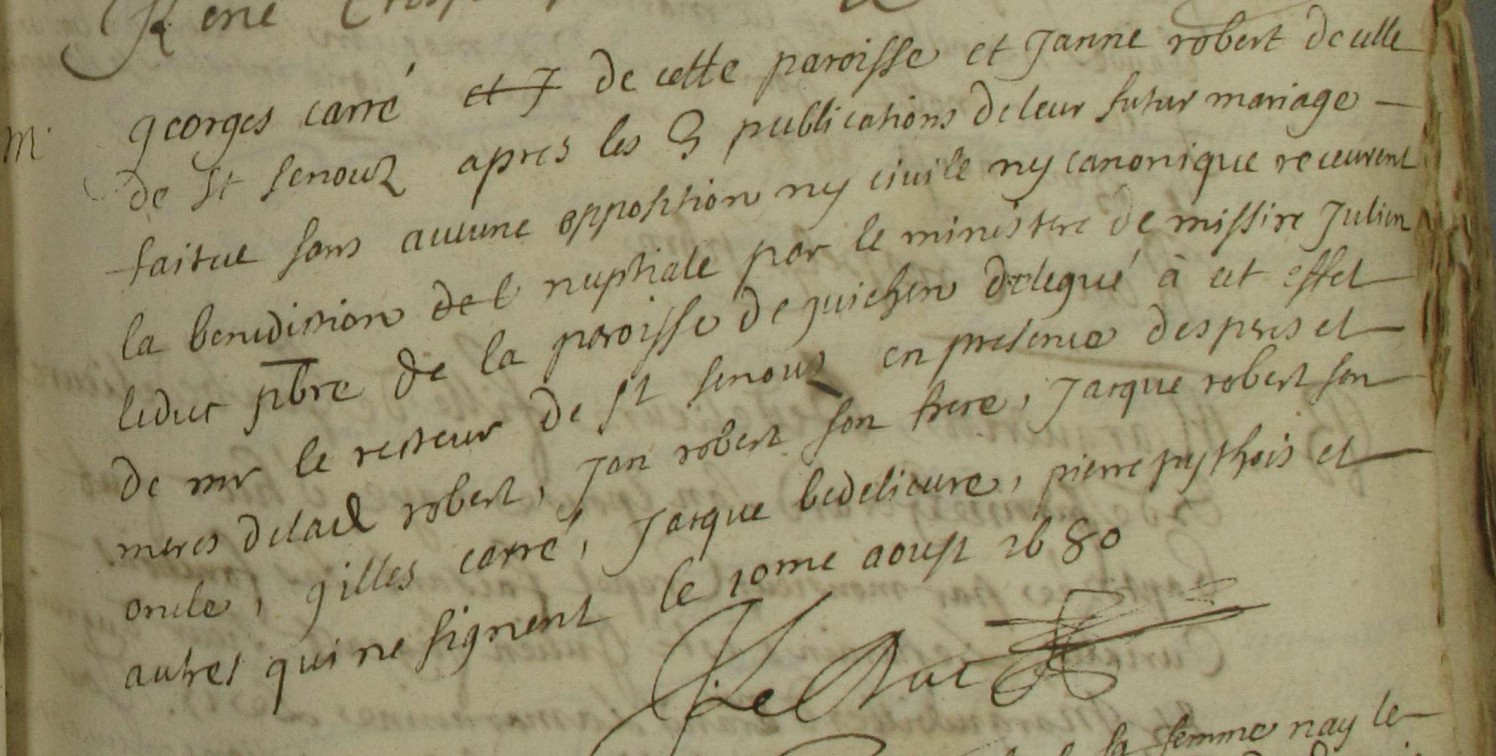 René
M georges carré et J de cette paroisse et Janne robert de celle
de St senoux apres les 3 publications de leur futur mariage
faitue sans aucune opposition ny civile ny canonique receurent
la benediction de l nuptiale par le ministere de missire Julien
leduc pbre de la paroisse de guichen delegué à cet effet
de mr le recteur de St senoux en presence des peres et
meres de lad robert, Jan robert son frere, Jacque robert son
oncle, gilles carré, Jacque bedelieure, pierre pythois et
autres qui ne signent le 10me aoust 1680
J Le Duc
sa femme nay le